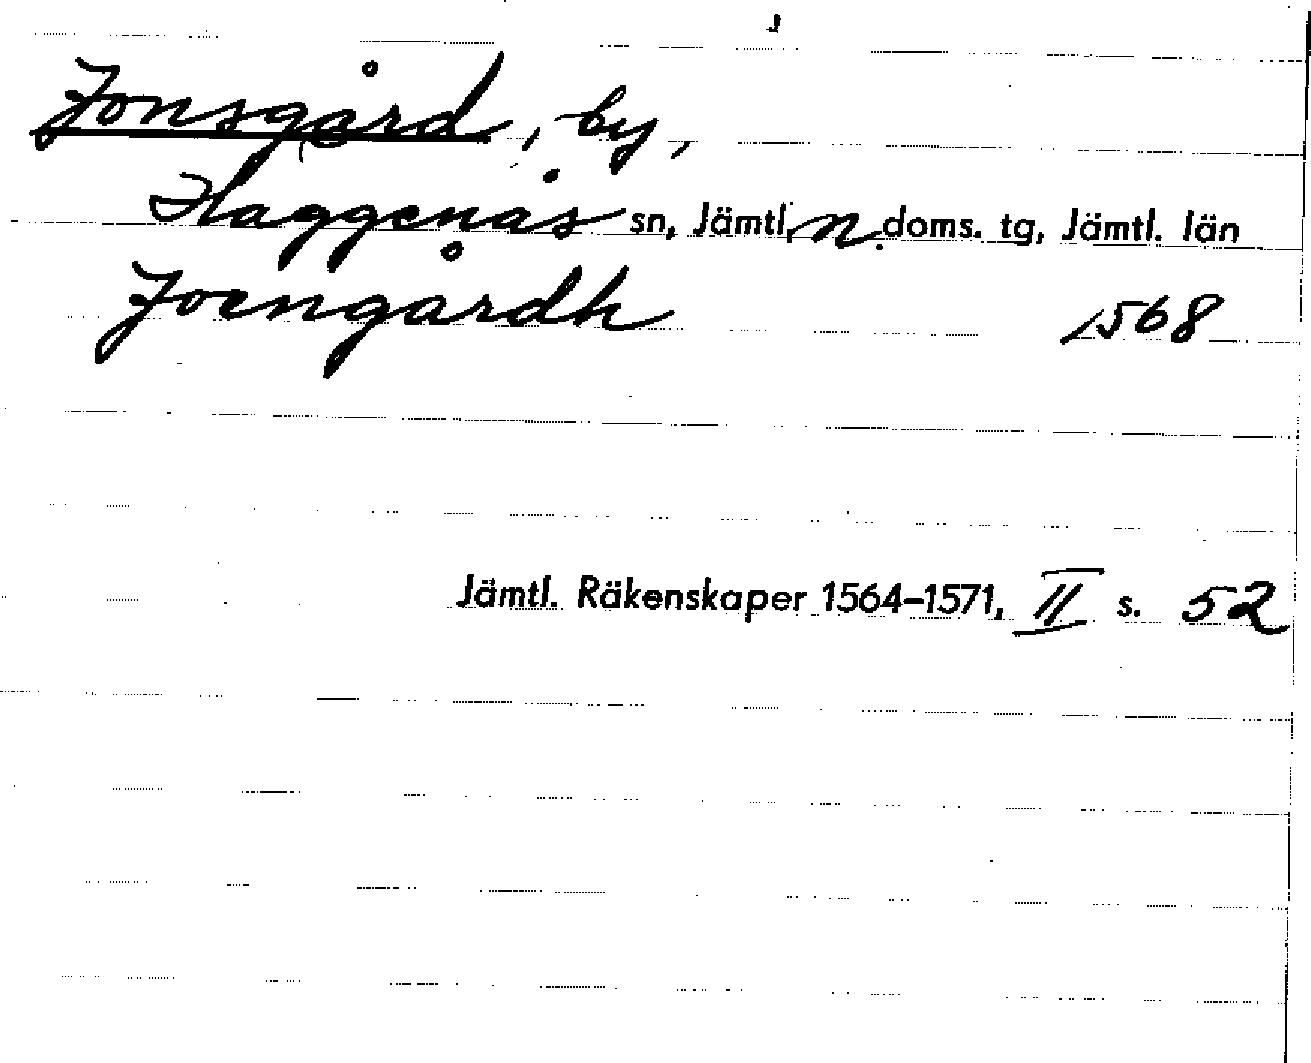 Jonsgård, by,
Häggenås sn, Jämtl. n. doms. tg, Jämtl. län
Joengårdh 1568
Jämtl. Räkenskaper 1564-1571, II s. 52